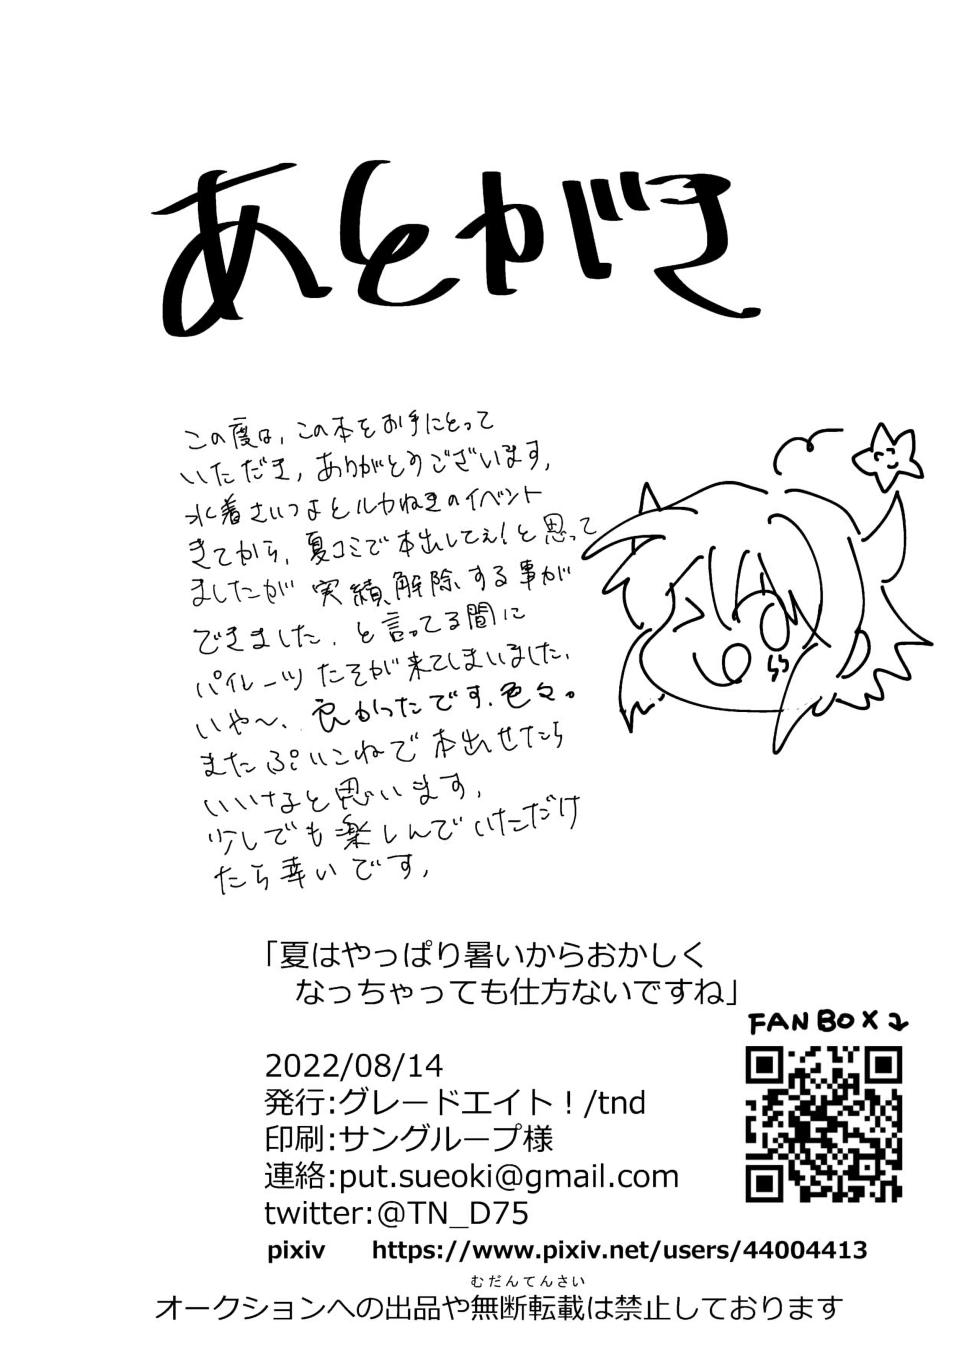 あとがき
この度は、この本をお手にとって
いただき、ありがとうございます、
水着さいつよとルカねきのイベント
きてから、夏コミで本出してぇ!と思って
ましたが 実績解除する事が
できました、と言ってる間に
パイレーツたそが来てしまいました、
いや〜、良かったです、色々。
またぷいこねで本出せたら
いいなと思います、
少しでも楽しんでいただけ
たら幸いです、
「夏はやっぱり暑いからおかしく
なっちゃっても仕方ないですね」
FANBOX
2022/08/14
発行:グレードエイト!/tnd
印刷:サングループ様
連絡:put.sueoki@gmail.com
twitter:@TN_D75
pixiv https://www.pixiv.net/users/44004413
むだんてんさい
オークションへの出品や無断転載は禁止しております